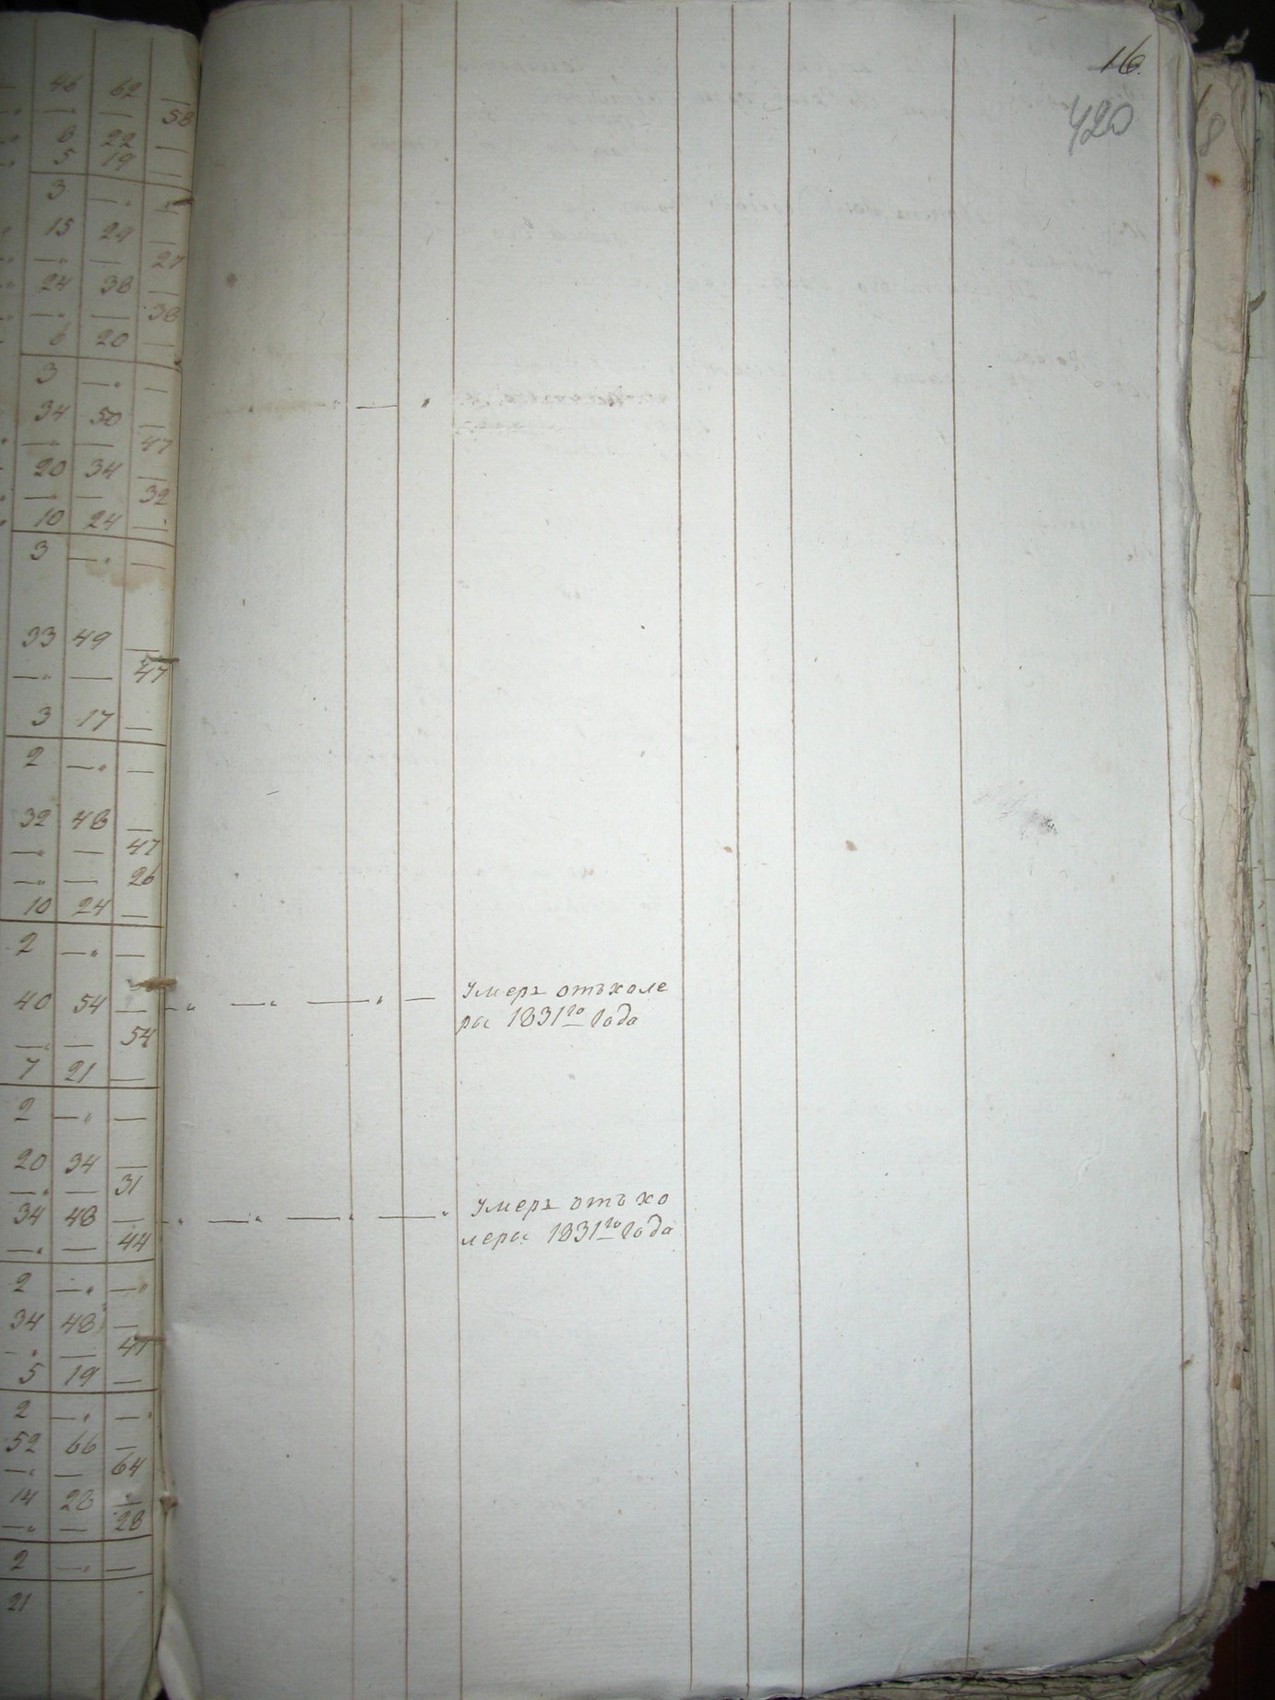 16.
420
46 62 —
— — 58
6 22 —
5 19 —
3 — —
15 24 —
— — 27
24 38 —
— — 38
6 20 —
3 — —
34 50 —
— — 47
20 34 —
— — 32
10 24 —
3 — —
33 49 —
— — 47
3 17 —
2 — —
32 48 —
— — 47
— — 26
10 24 —
2 — —
40 54 —
— — 54
7 21 —
2 — —
20 34 —
— — 31
34 48 —
— — 44
2 — —
34 48 —
— — 47
5 19 —
2 — —
52 66 —
— — 64
14 28 —
— — 28
2 — —
21
Умеръ отъ холе
ры 1831го года
Умеръ отъ хо
леры 1831го года